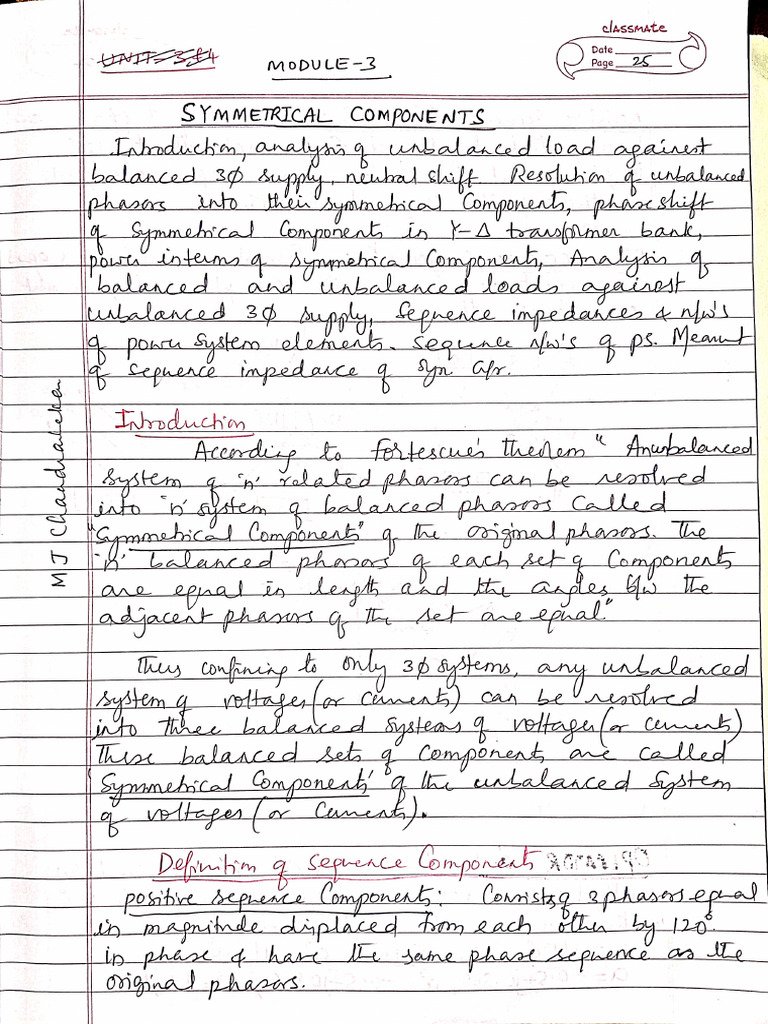 classmate
Date
Page 25
UNIT-3&4
MODULE-3
SYMMETRICAL COMPONENTS
Introduction, analysis of unbalanced load against
balanced 3Ø supply, neutral shift. Resolution of unbalanced
phasors into their symmetrical Components, phase shift
of Symmetrical Components in Y-Δ transformer bank,
power interms of symmetrical Components, Analysis of
balanced and unbalanced loads against
unbalanced 3Ø supply, Sequence impedances & n/w's
of power system elements. Sequence n/w's of ps. Mearmt
of sequence impedance of Syn G/r.
MJ Chandralekha
Introduction
According to fortescue's theorem " An unbalanced
system of 'n' related phasors can be resolved
into 'n' system of balanced phasors called
"Symmetrical Components" of the original phasors. The
'n' balanced phasors of each set of Components
are equal in length and the angles b/w the
adjacent phasors of the set are equal."
Thus confining to only 3Ø systems, any unbalanced
system of voltages (or currents) can be resolved
into three balanced systems of voltages (or currents)
These balanced sets of components are called
'Symmetrical Components' of the unbalanced system
of voltages (or currents).
Definition of sequence Components
positive sequence Components: Consists of 3 phasors equal
in magnitude displaced from each other by 120°
in phase & have the same phase sequence as the
original phasors.